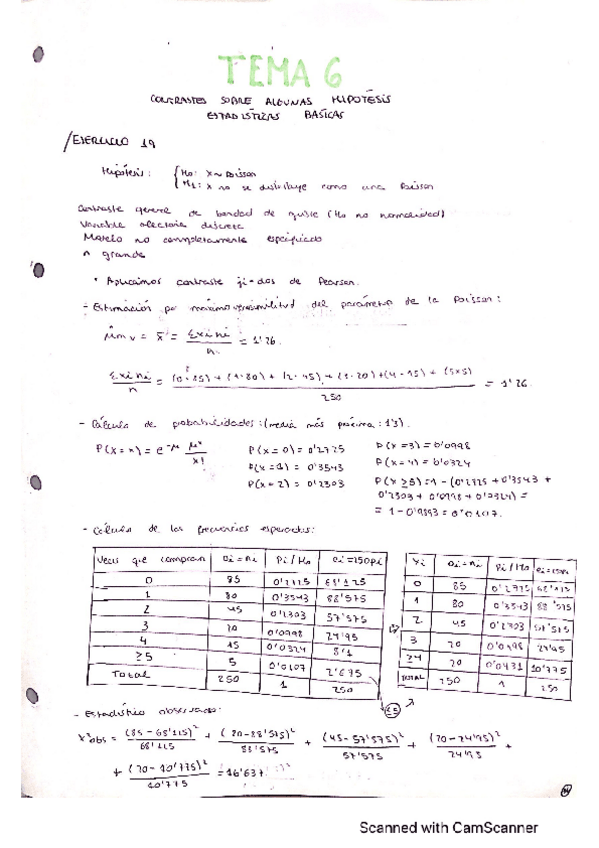 TEMA 6
CONTRASTES SOBRE ALGUNAS HIPÓTESIS
ESTADÍSTICAS BÁSICAS
/EJERCICIO 19
Hipótesis: { H0: X ~ Poisson
H1: X no se distribuye como una Poisson
Contraste general de bondad de ajuste (H0 no normalidad)
Variable aleatoria discreta
Modelo no completamente especificado
n grande
• Aplicamos contraste ji-dos de Pearson.
- Estimación por máxima verosimilitud del parámetro de la Poisson:
μ̂mv = x̄ = Σxini / n = 1'26.
Σxini / n = (0·85) + (1·80) + (2·45) + (3·20) + (4·15) + (5×5) / 250 = 1'26
- Cálculo de probabilidades: (media más próxima: 1'3).
P(X=x) = e^-μ μ^x / x!
P(X=0) = 0'2725
P(X=1) = 0'3543
P(X=2) = 0'2303
P(X=3) = 0'0998
P(X=4) = 0'0324
P(X≥5) = 1 - (0'2725 + 0'3543 +
0'2303 + 0'0998 + 0'0324) =
= 1 - 0'9893 = 0'0107.
- Cálculo de las frecuencias esperadas:
Veces que compraron | Oi = ni | Pi / H0 | ei = 250pi
0 | 85 | 0'2725 | 68'125
1 | 80 | 0'3543 | 88'575
2 | 45 | 0'2303 | 57'575
3 | 20 | 0'0998 | 24'95
4 | 15 | 0'0324 | 8'1
≥5 | 5 | 0'0107 | 2'675
Total | 250 | 1 | 250
Xi | Oi = ni | Pi / H0 | ei = 250pi
0 | 85 | 0'2725 | 68'125
1 | 80 | 0'3543 | 88'575
2 | 45 | 0'2303 | 57'575
3 | 20 | 0'0998 | 24'95
≥4 | 20 | 0'0431 | 10'775
TOTAL | 250 | 1 | 250
<5
- Estadístico observado:
X²obs = (85 - 68'125)² / 68'125 + (80 - 88'575)² / 88'575 + (45 - 57'575)² / 57'575 + (20 - 24'95)² / 24'95 +
+ (20 - 10'775)² / 10'775 = 16'637.
Scanned with CamScanner